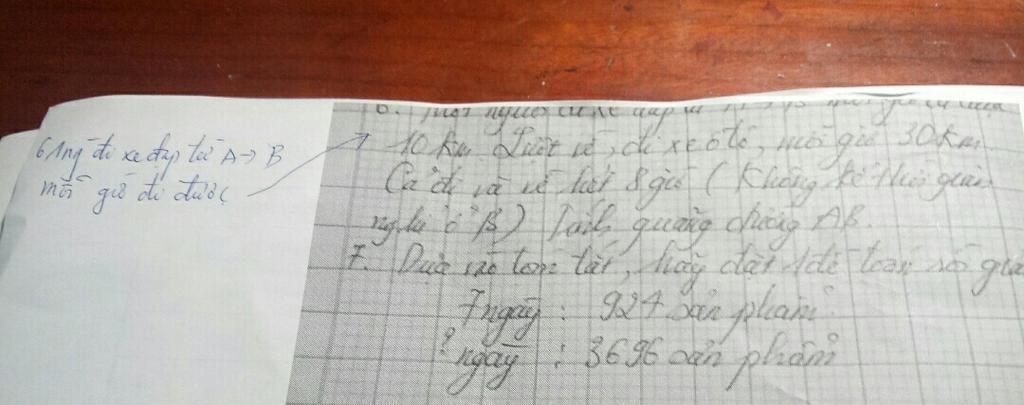 6. 1 ng đi xe đạp từ A → B
mỗi giờ đi được
6. Một người đi xe đạp từ A → B mỗi giờ đi được
10 km. Lượt về, đi xe ô tô, mỗi giờ 30 km
Cả đi và về hết 8 giờ (Không kể thời gian
nghỉ ở B) Tính quãng đường AB.
7. Dựa vào tóm tắt, hãy đặt 1 đề toán rồi giải
7 ngày : 924 sản phẩm
? ngày : 3696 sản phẩm